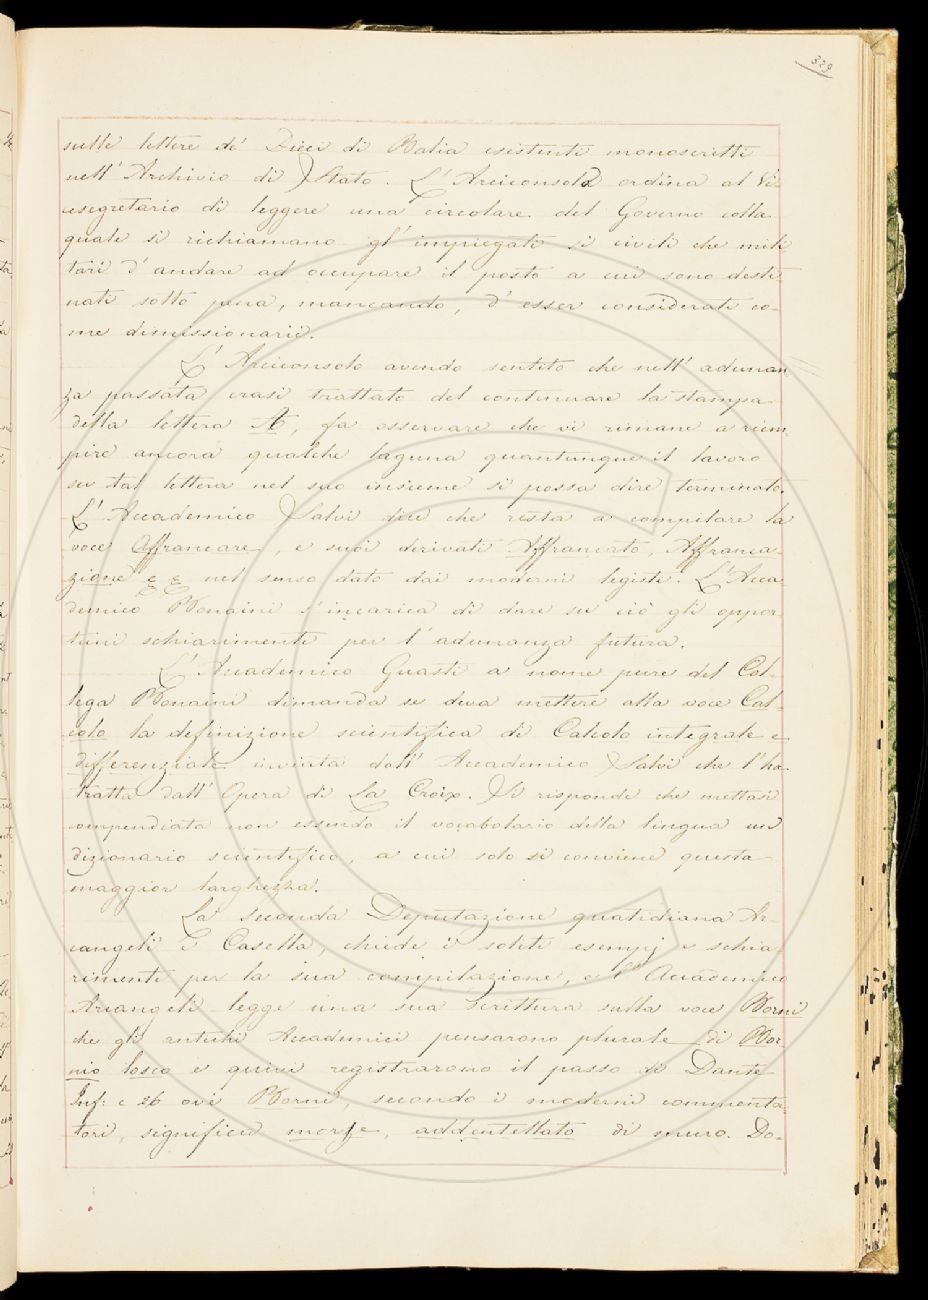 329
sulle lettere de' Dieci di Balia esistenti monoscritti
nell' Archivio di Stato. L' Arciconsolo ordina al Vi-
cesegretario di leggere una circolare del Governo colla
quale si richiamano gl' impiegati si civili che mili
tari d' andare ad occupare il posto a cui sono desti
nati sotto pena, mancando, d' esser considerati co-
me dimissionarii.
L' Arciconsolo avendo sentito che nell' adunan
za passata erasi trattato del continuare la stampa
della lettera A, fa osservare che vi rimane a riem
pire ancora qualche laguna quantunque il lavoro
su tal lettera nel suo insieme si possa dire terminato.
L' Accademico Salvi dice che resta a compilare la
voce Affrancare, e suoi derivati Affrancato, Affranca-
zione &c &c nel senso dato dai moderni legisti. L' Acca-
demico Bonaini s' incarica di dare su ciò gli oppor-
tuni schiarimenti per l' adunanza futura.
L' Accademico Guasti a nome pure del Col-
lega Bonaini dimanda se deva mettere alla voce Cal-
colo la definizione scientifica di Calcolo integrale e
differenziale inviata dall' Accademico Salvi che l' ha
tratta dall' Opera di La Croix. Si risponde che mettasi
compendiata non essendo il vocabolario della lingua un
dizionario scientifico, a cui solo si conviene questa
maggior larghezza.
La seconda Deputazione quatidiana Ar-
cangeli e Casella, chiede i soliti esempj e schia
rimenti per la sua compilazione, e l' Accademico
Arcangeli legge una sua scrittura sulla voce Borni
che gli antichi Accademici pensarono plurale di Bor-
nio losco e quivi registrarono il passo di Dante
Inf: c 26 ove Borni, secondo i moderni commenta
tori, significa morse, addentellato di muro. Do-